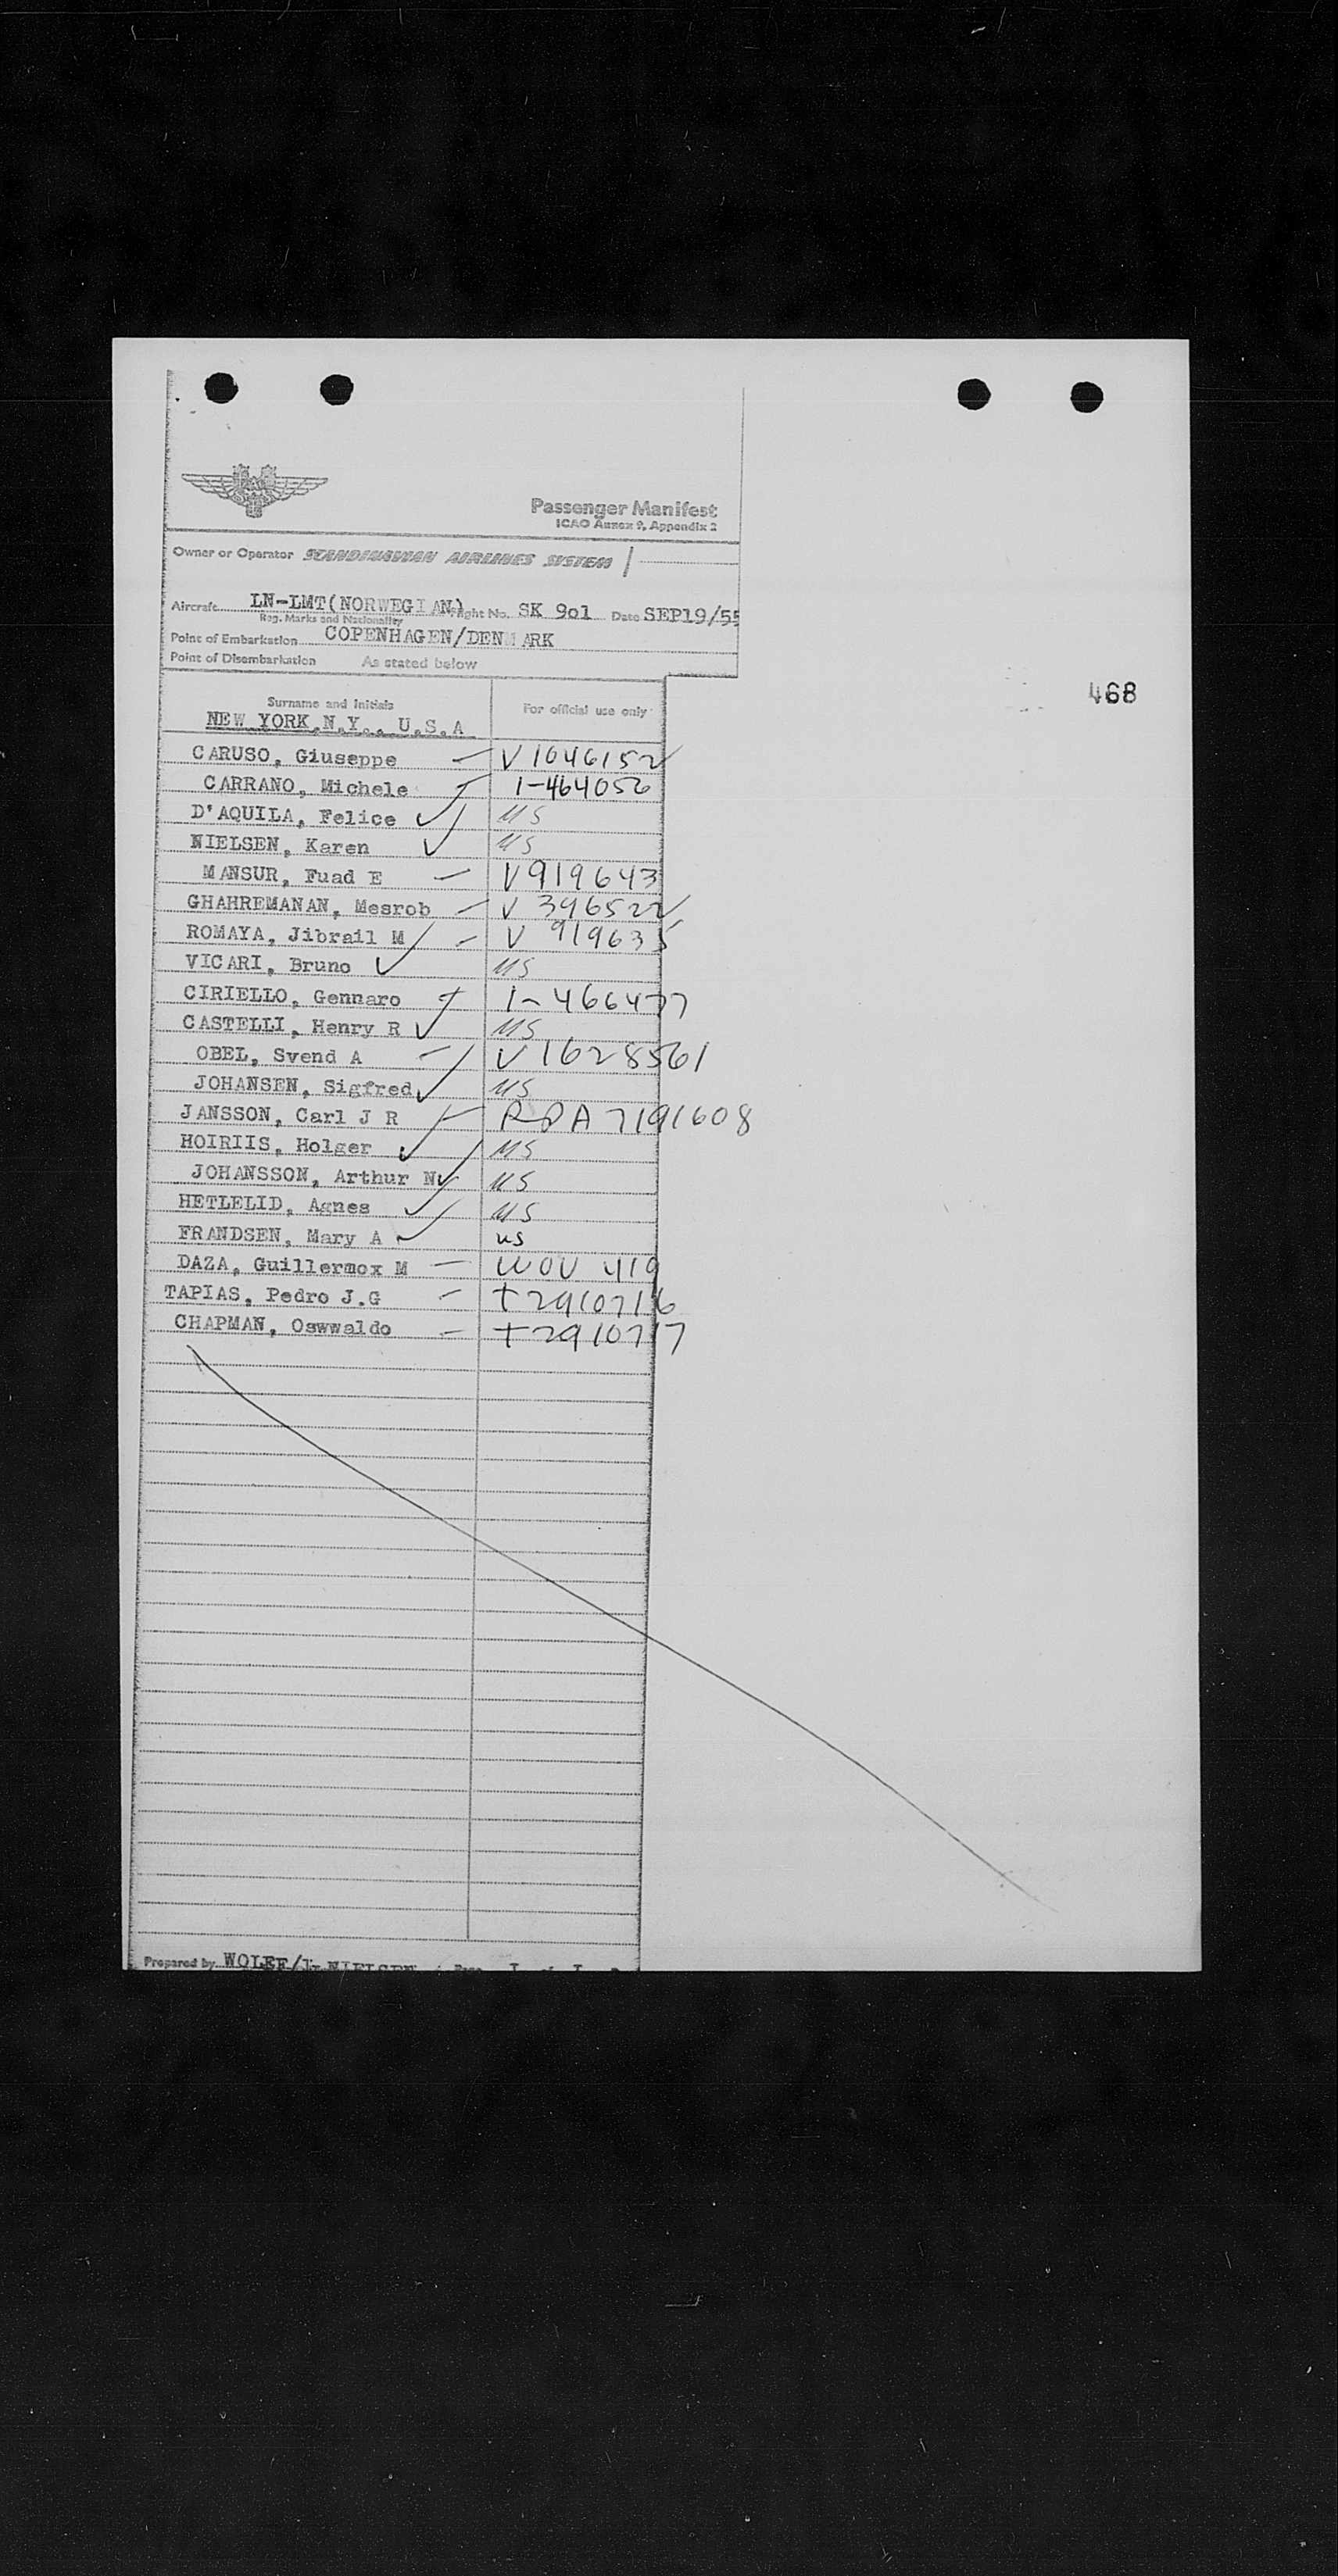 Passenger Manifest
ICAO Annex 9, Appendix 2
Owner or Operator SCANDINAVIAN AIRLINES SYSTEM
Aircraft LN-LMT(NORWEGIAN) Flight No. SK 9o1 Date SEP19/55
Reg. Marks and Nationality
Point of Embarkation COPENHAGEN/DENMARK
Point of Disembarkation As stated below
468
Surname and Initials For official use only
NEW YORK,N.Y., U.S.A
CARUSO, Giuseppe V1646152
CARRANO, Michele 1-464056
D'AQUILA, Felice US
NIELSEN, Karen US
MANSUR, Fuad E V919643
GHAHREMANAN, Mesrob V 396522
ROMAYA, Jibrail M V 919635
VICARI, Bruno US
CIRIELLO, Gennaro 1-466477
CASTELLI, Henry R US
OBEL, Svend A V1628561
JOHANSEN, Sigfred US
JANSSON, Carl J R RPA 7191608
HOIRIIS, Holger US
JOHANSSON, Arthur N US
HETLELID, Agnes US
FRANDSEN, Mary A us
DAZA, Guillermox M WOV 419
TAPIAS, Pedro J.G t2910716
CHAPMAN, Oswwaldo t2910717
Prepared by WOLFF/ NIELSEN